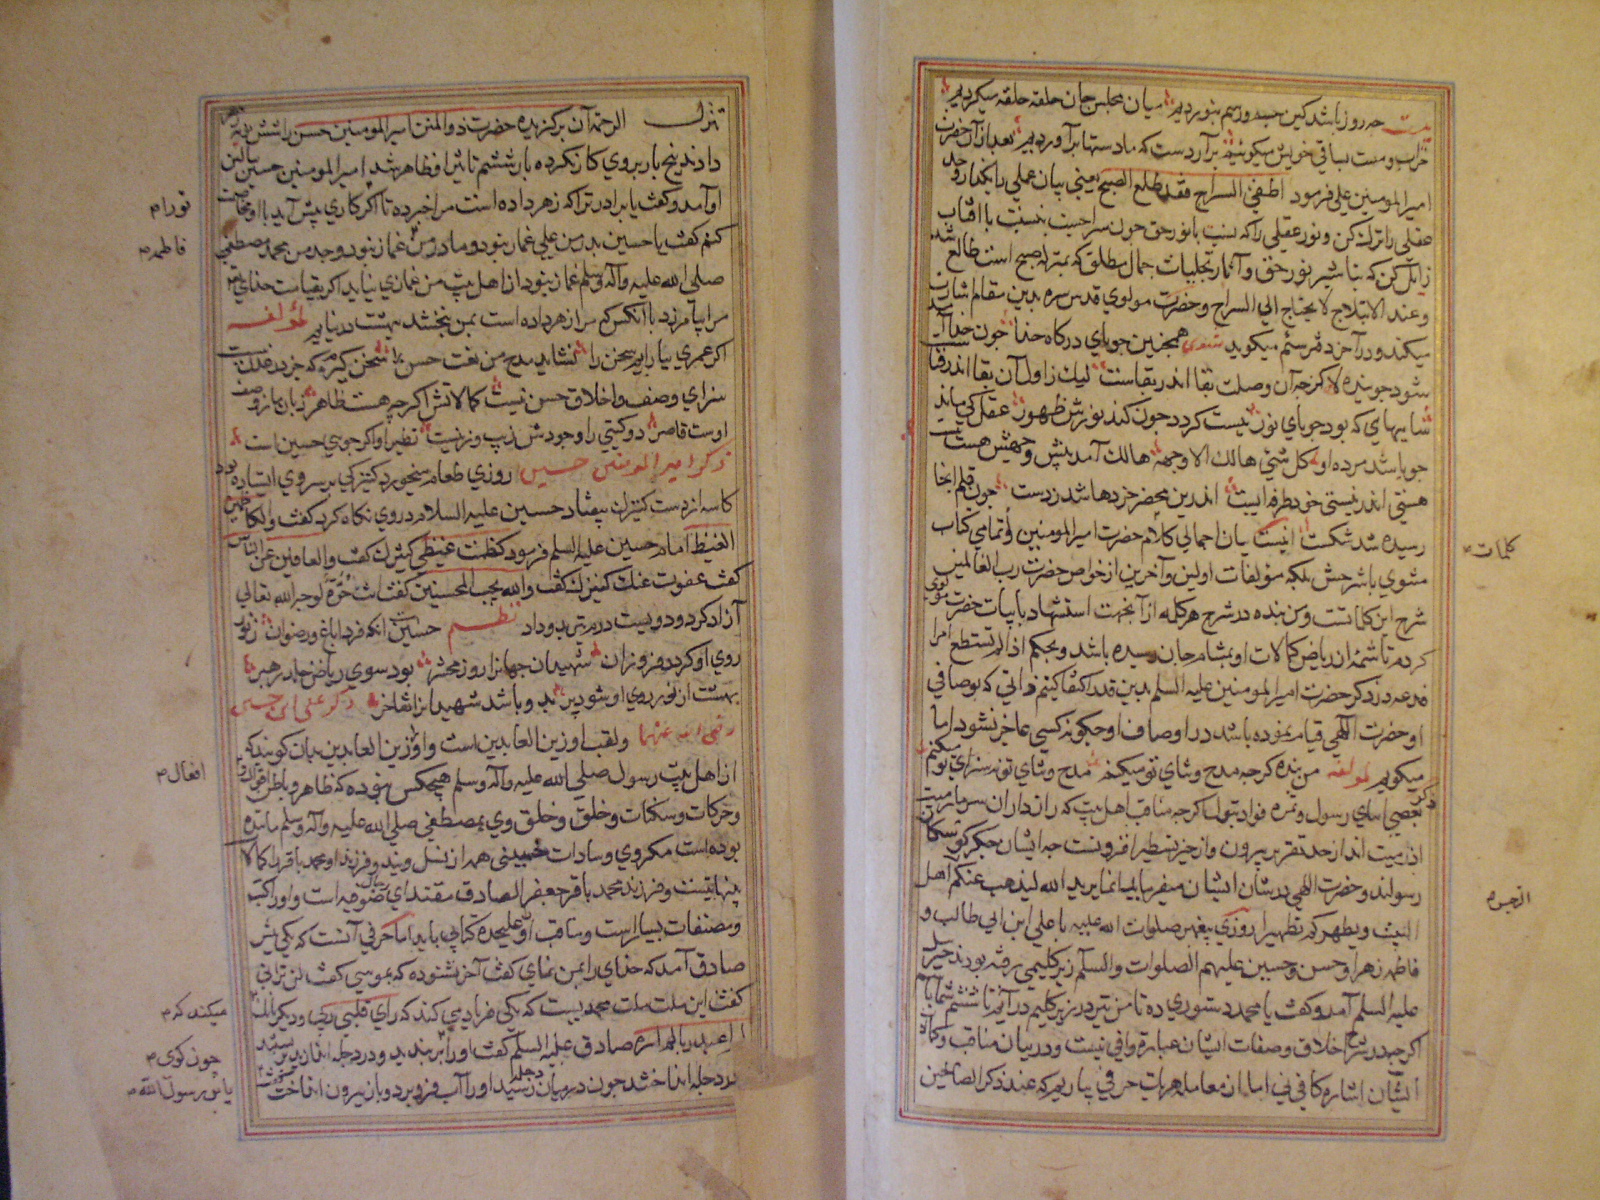 بیت چه روز باشد کین جسم و رسم بنوردیم میان مجلس جان حلقه حلقه میگردیم
خراب و مست بساقی خویش میگوئیم برآر دست که ما دستها برآوردیم بعد ازآن حضرت
امیر المومنین علی فرمود اطفئ السراج فقد طلع الصبح یعنی بیان عقلی را بگذار و جد
عقلی را ترک کن و نور عقلی را که نسبت با نور حق چون سراجیست بنسبت با آفتاب
زایل کن که تباشیر نور حق و آثار تجلیات جمال مطلق که بمنزله صبح است طالع شد
وعند الابتلاج لا یحتاج الی السراج و حضرت مولوی قدس سره بدین مقام اشارت
میکند و در آخر دفتر سیم میگوید مثنوی همچنین جویای درگاه خدا چون خدا آمد
شود جوینده لا گرچه آن وصلت بقا اندر بقاست لیک ز اول آن بقا اندر فناست
سایهای که بود جویای نور نیست گردد چون کند نورش ظهور عقل کی ماند
چو باشد سرده او کل شئ هالک الا وجهه هالک آمد پیش وجهش هست نیست
هستی اندر نیستی خود طرفه ایست اندرین محضر خردها شد ز دست چون قلم اینجا
رسیده شد شکست اینست بیان اجمالی کلام حضرت امیر المومنین و تمامی کتاب
مثنوی با شرحش بلکه مؤلفات اولین و آخرین از خواص حضرت رب العالمین
شرح این کلماتست و من بنده در شرح هر کلمه از آنجهت استشهاد بابیات حضرت مولوی
کردم تا شمه از ریاض کمالات او بمشام جان رسیده باشد و بحکم اذا لم تستطع امرا
فدعه در ذکر حضرت امیر المومنین علیه السلم بدین قدر اکتفا کنیم ذاتی که بوصافی
او حضرت اللهی قیام نموده باشد در اوصاف او چگونه کسی عاجز نشود اما
میگویم لمولفه من بنده گرچه مدح و ثنای تو میکنم مدح و ثنای تو نه سزای تو میکنم
ذکر بعضی اسامی رسول و ثمره فواد بتول اگرچه مناقب اهل بیت که رازداران سر
اند از حد تقریر بیرون و از حیز تسطیر افزونست چه ایشان جگر گوشگان
رسولند و حضرت اللهی در شان ایشان میفرماید انما یرید الله لیذهب عنکم اهل
البیت و یطهرکم تطهیرا روزی پیغمبر صلوات الله علیه با علی ابن ابی طالب و
فاطمه زهرا و حسن و حسین علیهم الصلوات والسلم زیر گلیمی رفته بودند جبرئیل
علیه السلم آمد و گفت یا محمد دستوری ده تا من نیز در زیر گلیم درآیم تا ششم شما باشم
اگرچه در شرح اخلاق و صفات ایشان عبارة وافی نیست و در بیان مناقب و کمالات
ایشان اشاره کافی نی اما از معامله هر یاب حرفی بیاریم که عند ذکر الصالحین
کلمات
الرجس
تنزل الرحمة آن برگزیده حضرت ذو المنن امیر المومنین حسن را شش بار زهر
دادند پنج بار بروی کار نکرده بار ششم تاثیر او ظاهر شد امیر المومنین حسین ببالین
او آمد و گفت یا برادر ترا که زهر داده است مرا خبر ده تا اگر کاری پیش آید با او مخاصمت
کنم گفت یا حسین پدر من علی غماز نبود و مادر من غماز نبود و جد من محمد مصطفی
صلی الله علیه وآله وسلم غماز نبود از اهل بیت من غمازی نیاید اگر بقیامت خدای تعالی
مرا بیامرزد با آنکس که مرا زهر داده است بمن نبخشد ببهشت درنیایم لمولفه
اگر عمری بیارایم سخن را نشاید مدح من نعت حسن را سخن گیرم که چرخ درفلک نیست
سزای وصف و اخلاق حسن نیست کمالاتش اگرچه هست ظاهر زبان ما ز وصف
اوست قاصر دو گیتی را وجودش زیب و زینست نظیر او اگر جوی حسین است
ذکر امیر المومنین حسین روزی طعام میخورد کنیزکی بر سر وی ایستاده بود
کاسه از دست کنیزک بیفتاد حسین علیه السلام در وی نگاه کرد گفت والکاظمین
الغیظ امام حسین علیه السلم فرمود کظمت غیظی کنیزک گفت والعافین عن الناس
گفت عفوت عنک کنیزک گفت والله یحب المحسنین گفت انت حرة لوجه الله تعالی
آزاد کرد و دویست درم نیز بدو داد نظم حسین آنکه فردا باغ رضوان ز نور
روی او گردد فروزان شهیدان جهانرا روز محشر بود سوی ریاض خلد رهبر
بهشت از نور روی او شود پر بدو باشد شهیدانرا تفاخر ذکر علی ابن حسین
رضی الله عنهما ولقب او زین العابدین است و او را زین العابدین بدان گویند که
از اهل بیت رسول صلی الله علیه وآله وسلم هیچکس نبوده که ظاهر و باطن
و حرکات و سکنات و خلق و خلق وی بمصطفی صلی الله علیه وآله وسلم ماننده
بوده است مگر وی و سادات حسینی همه از نسل ویند و فرزند او محمد باقر را کمالات
بینهایتست و فرزند محمد باقر جعفر الصادق مقتدای رجال صوفیه است و او را کتب
و مصنفات بسیار است و مناقب او را علیحده کتابی باید اما حرفی آنست که یکی پیش
صادق آمد که خدای را بمن نمای گفت آخر نشنوده که بموسی گفت لن ترانی
گفت این ملت ملت محمدیست که یکی فریاد می کند که رای قلبی ربی و دیگر بانگ
لا اعبد ربا لم اره صادق علیه السلم گفت او را بربندید و در دجله اندازید بر بستند
در دجله انداختند چون در میان دجله رسید او را آب فرو برد و باز بیرون انداخت
فاطمه
افعال
میکند که
چون گوی
یا بن رسول الله